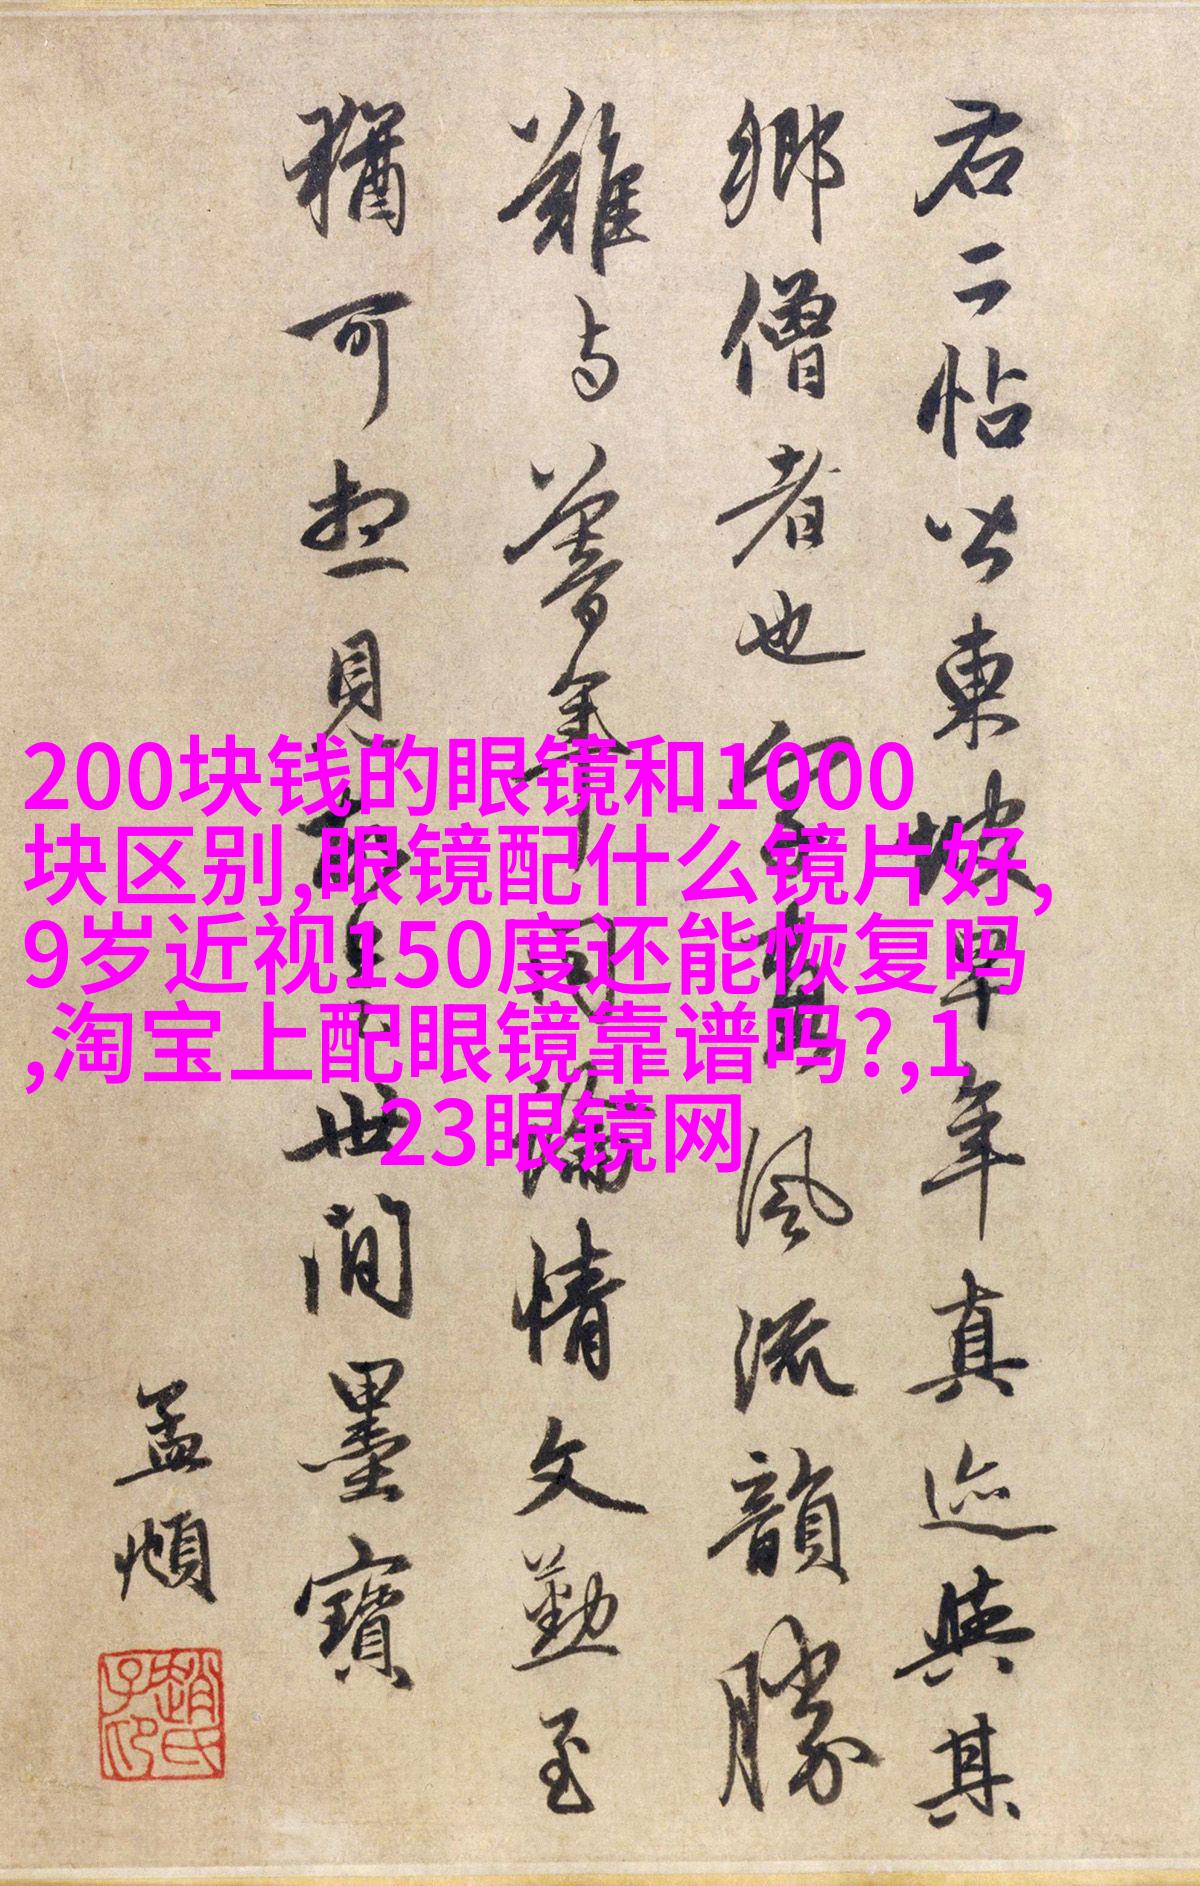 200块钱的眼镜和1000
块区别,眼镜配什么镜片好,
9岁近视150度还能恢复吗
,淘宝上配眼镜靠谱吗?,1
23眼镜网
右二帖皆東坡早年真迹與其
鄉僧者也字畫風流韻勝
難與暮年同論情文勤至
猶可想見故是世間墨寶
孟頫
趙氏子昂